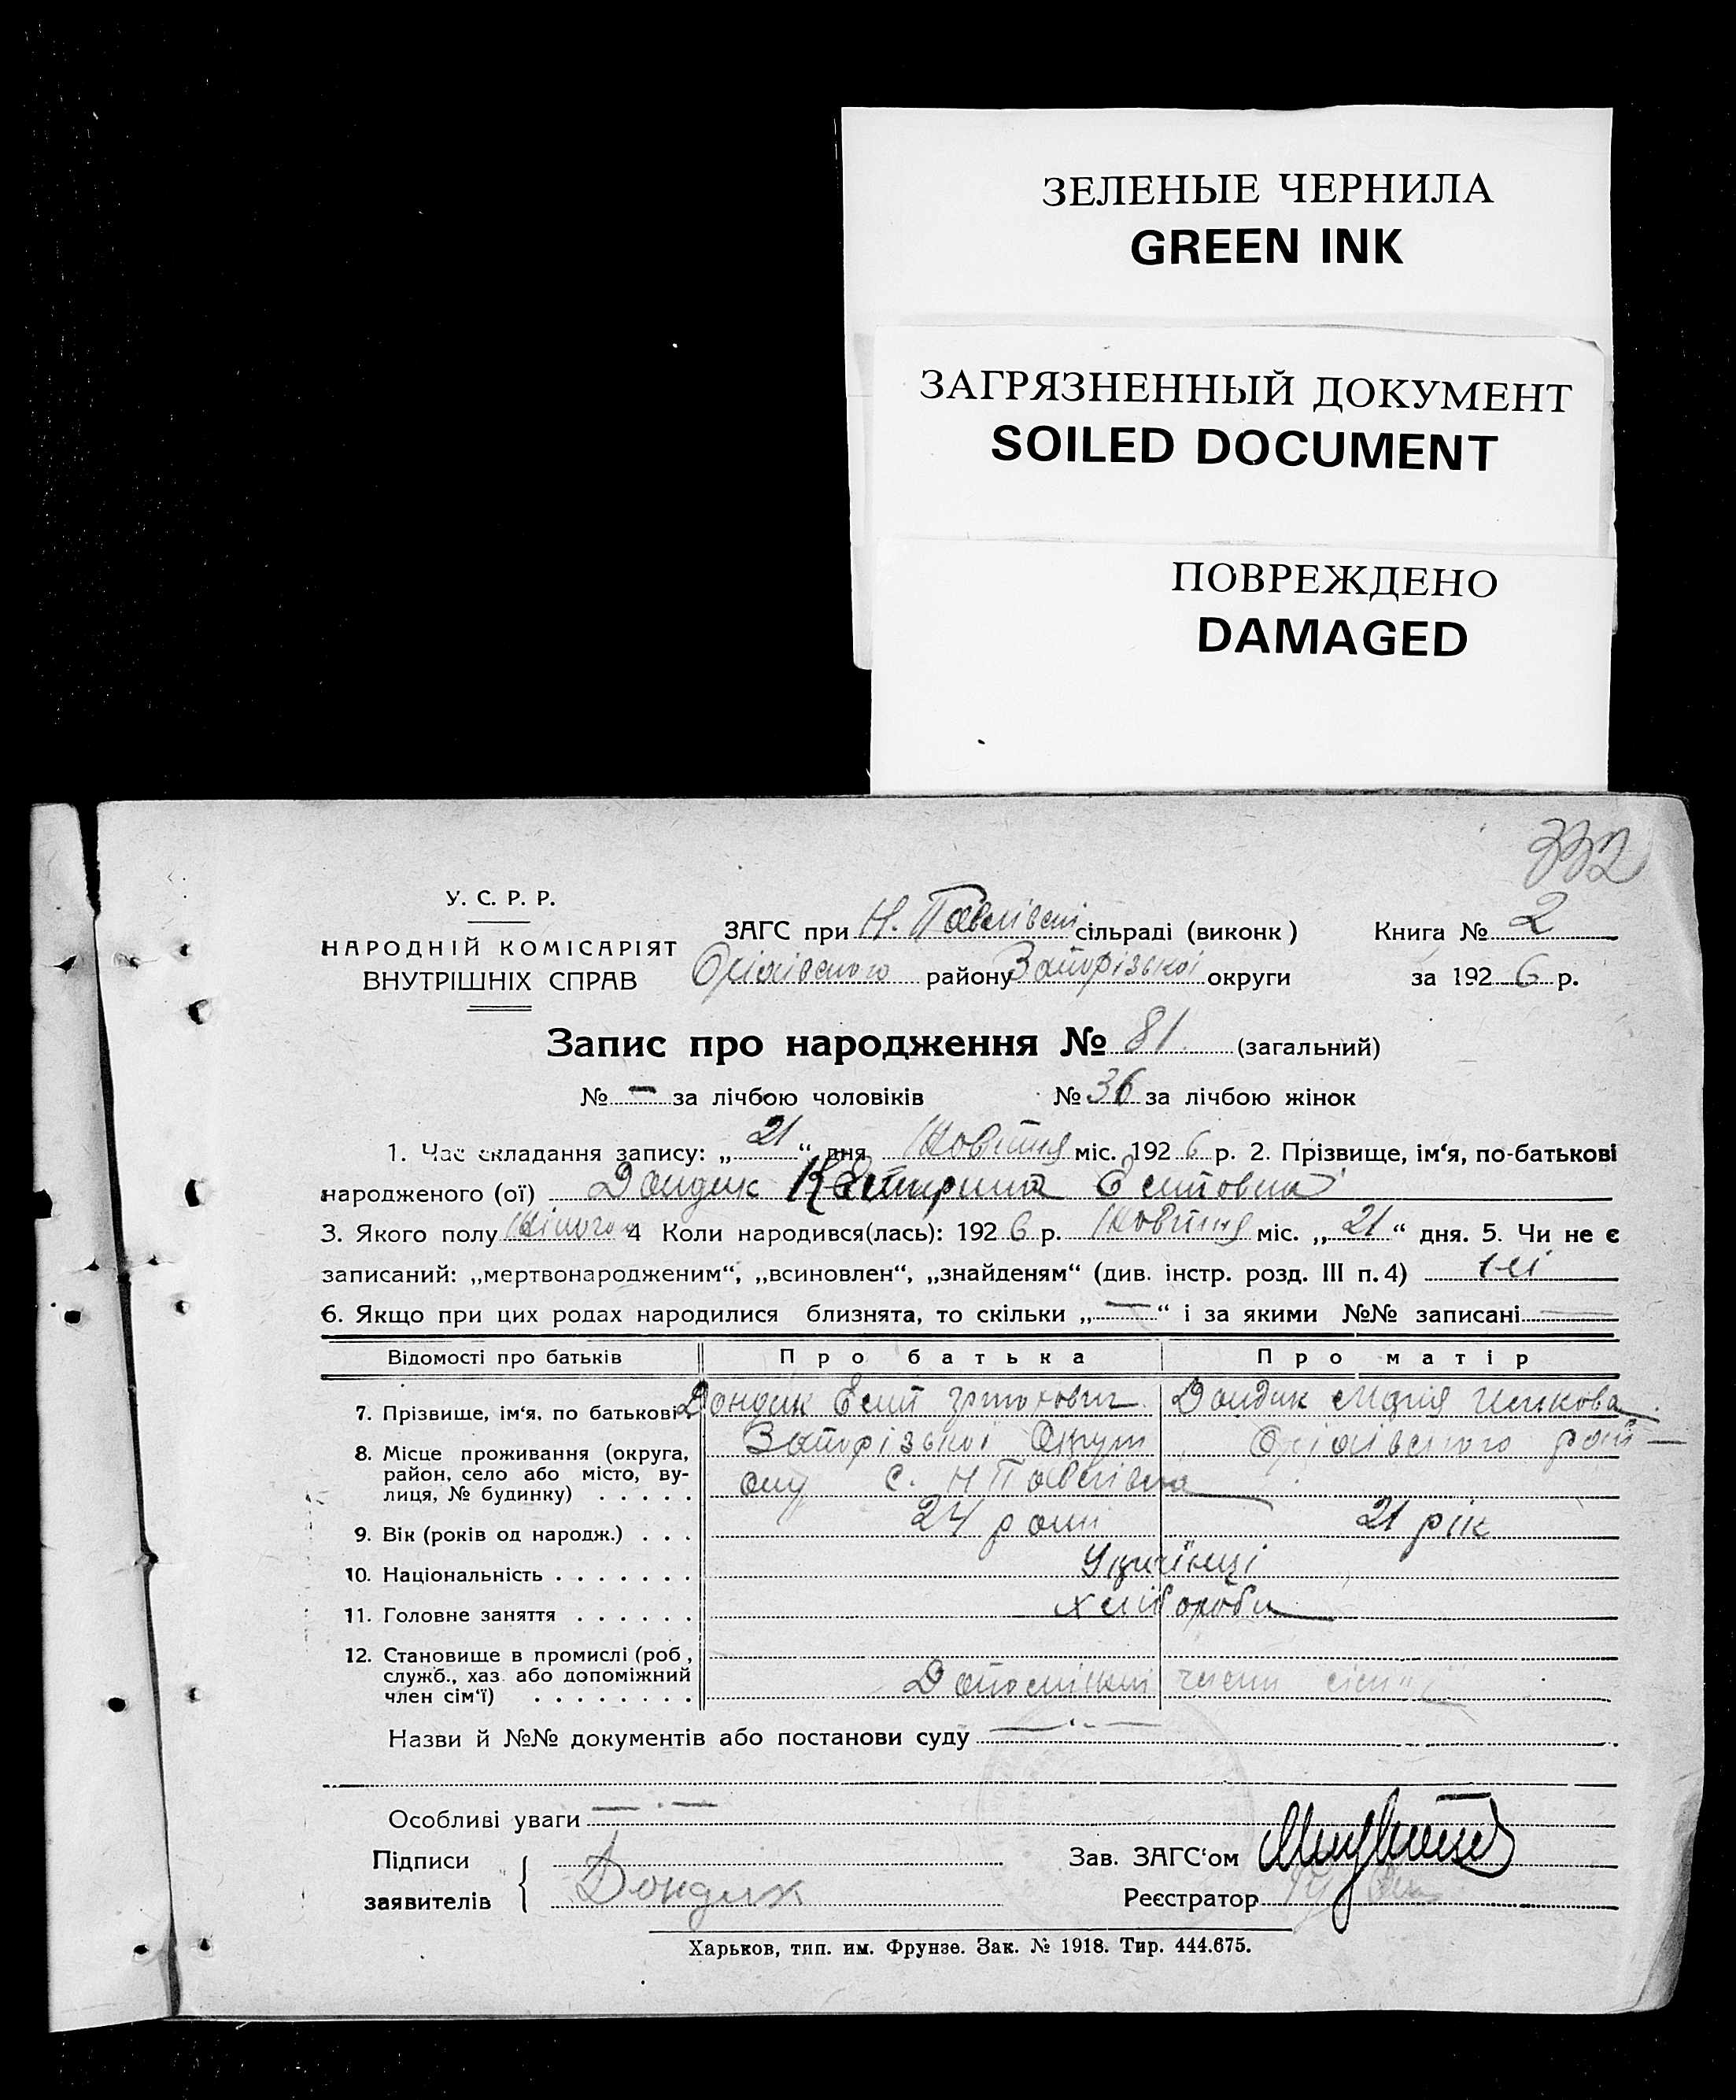 ЗЕЛЕНЫЕ ЧЕРНИЛА
GREEN INK
ЗАГРЯЗНЕННЫЙ ДОКУМЕНТ
SOILED DOCUMENT
ПОВРЕЖДЕНО
DAMAGED
332
У. С. Р. Р.
НАРОДНІЙ КОМІСАРІЯТ
ВНУТРІШНІХ СПРАВ
ЗАГС при Н. Павлівській сільраді (виконк) Книга № 2
Оріхівського району Запорізької округи за 1926 р.
Запис про народження № 81 (загальний)
№ — за лічбою чоловіків № 36 за лічбою жінок
1. Час складання запису: „21“ дня Жовтня міс. 1926 р. 2. Прізвище, ім‘я, по-батькові
народженого (ої) Дондик Катерина
3. Якого полу Жіночого 4 Коли народився(лась): 1926 р. Жовтня міс. „21“ дня. 5. Чи не є
записаний: „мертвонародженим“, „всиновлен“, „знайденям“ (див. інстр. розд. III п. 4) ні
6. Якщо при цих родах народилися близнята, то скільки „—“ і за якими №№ записані —
Відомості про батьків Про батька Про матір
7. Прізвище, ім‘я. по батькові Дондик Дондик Марія
8. Місце проживання (округа, Запорізької Округи Оріхівського рай—
район, село або місто, ву-
лиця, № будинку) ону с. Н Павлівка
9. Вік (років од народж.) 24 роки 21 рік
10. Національність Українці
11. Головне заняття Хлібороби
12. Становище в промислі (роб,
служб., хаз. або допоміжний
член сім‘ї) Допоміжні члени сім"ї
Назви й №№ документів або постанови суду —
Особливі уваги —
Підписи
заявителів Дондик
Зав. ЗАГС‘ом
Реєстратор
Харьков, тип. им. Фрунзе. Зак. № 1918. Тир. 444.675.